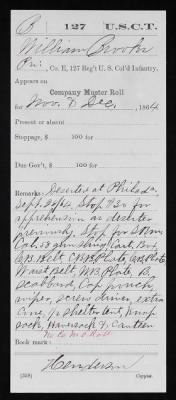 B | 127 | U.S.C.T.
William Brooks
Pri., Co. E, 127 Reg't U. S. Col'd Infantry.
Appears on
Company Muster Roll
for Nov. & Dec., 1864
Present or absent
Stoppage, $ 100 for
Due Gov't, $ 100 for
Remarks: Deserted at Philada.
Sept. 20/64. Stop $30 for
apprehension as deserter
previously. Stop for S.R.M.
Cal. 58 gun sling, Cart. Box
C.B. Belt, C.B. Plate, C.B.B. Plate
Waist Belt, W.B. Plate, B.
scabbard, Cap pouch,
wiper, screw driver, extra
cone, ½ shelter tent, Knap
sack, Haversack & Canteen
No Co. M. O. Roll
Book mark:
Henderson
(358) Copyist.